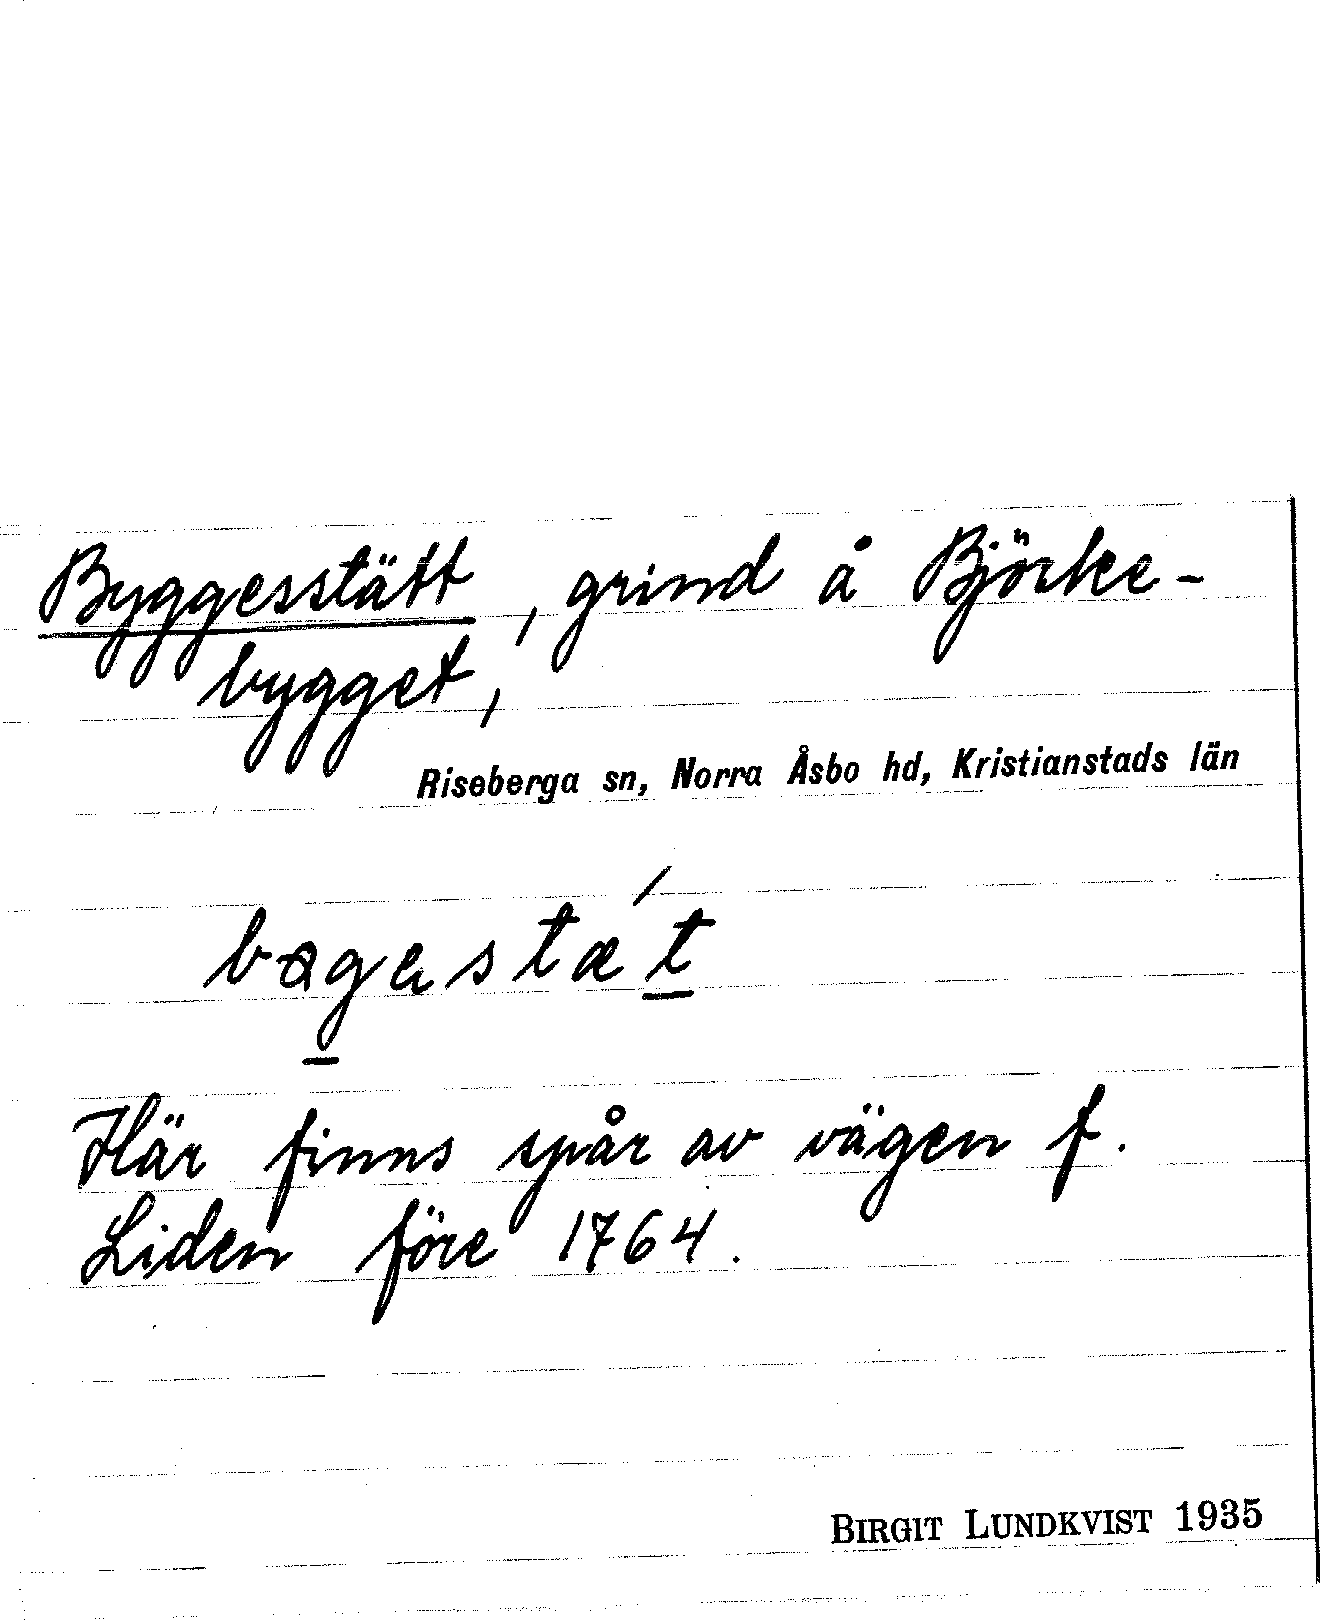 Byggesstätt, grind å Björke-
bygget,
Riseberga sn, Norra Åsbo hd, Kristianstads län
Här finns spår av vägen f.
Liden före 1764.
BIRGIT LUNDKVIST 1935